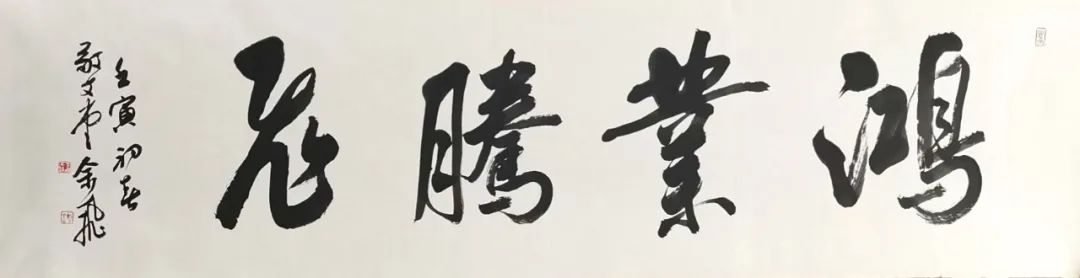 鴻業騰飛
壬寅初春
敬文堂余飛